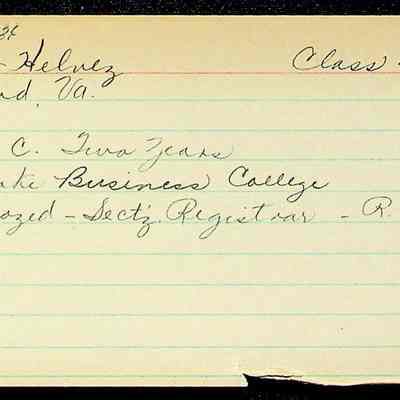 34
Helvez Class
rd, Va.
C. Two Years
ke Business College
oyed - Sect'y. Registrar - R.